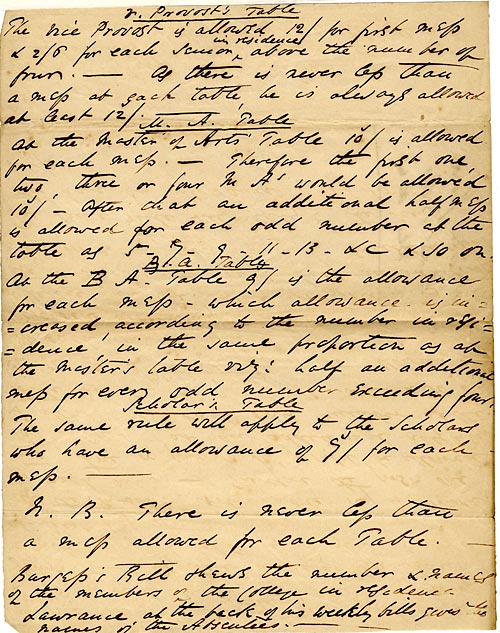 V. Provost's Table
The Vice Provost is allowed 12/ for first mess
& 2/6 for each Senior in residence above the number of
four. — As there is never less than
a mess at each table, he is always allowed
at least 12/
M. A. Table
At the Master of Arts' Table 10/ is allowed
for each mess. — Therefore the first one
two, three or four M A' would be allowed
10/ — After that an additional half mess
is allowed for each odd number at the
table as 5 - 7 - 9 - 11 - 13 - &c & so on.
B. A. Table
At the B A. Table 9/ is the allowance
for each mess - which allowance is in=
=creased, according to the number in resi=
=dence, in the same proportion as at
the Master's table viz: half an additional
mess for every odd number exceeding four.
Scholar's Table
The same rule will apply to the Scholars
who have an allowance of 9/ for each
mess. ———
N. B. There is never less than
a mess allowed for each Table. —
Burgess's Bill shews the number & names
of the members of the College in residence
Lawrance at the back of his weekly bills gives the
names of the Absentees. —